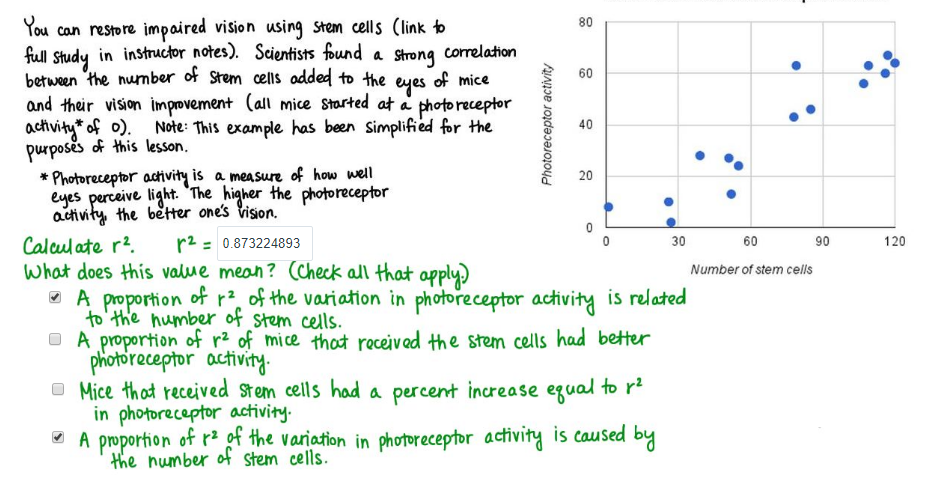 You can restore impaired vision using stem cells (link to
full study in instructor notes). Scientists found a strong correlation
between the number of stem cells added to the eyes of mice
and their vision improvement (all mice started at a photoreceptor
activity* of 0). Note: This example has been simplified for the
purposes of this lesson.
* Photoreceptor activity is a measure of how well
eyes perceive light. The higher the photoreceptor
activity, the better one's vision.
Calculate r². r² = 0.873224893
What does this value mean? (Check all that apply.)
A proportion of r² of the variation in photoreceptor activity is related
to the number of stem cells.
A proportion of r² of mice that received the stem cells had better
photoreceptor activity.
Mice that received stem cells had a percent increase equal to r²
in photoreceptor activity.
A proportion of r² of the variation in photoreceptor activity is caused by
the number of stem cells.
Photoreceptor activity
80
60
40
20
0
0 30 60 90 120
Number of stem cells